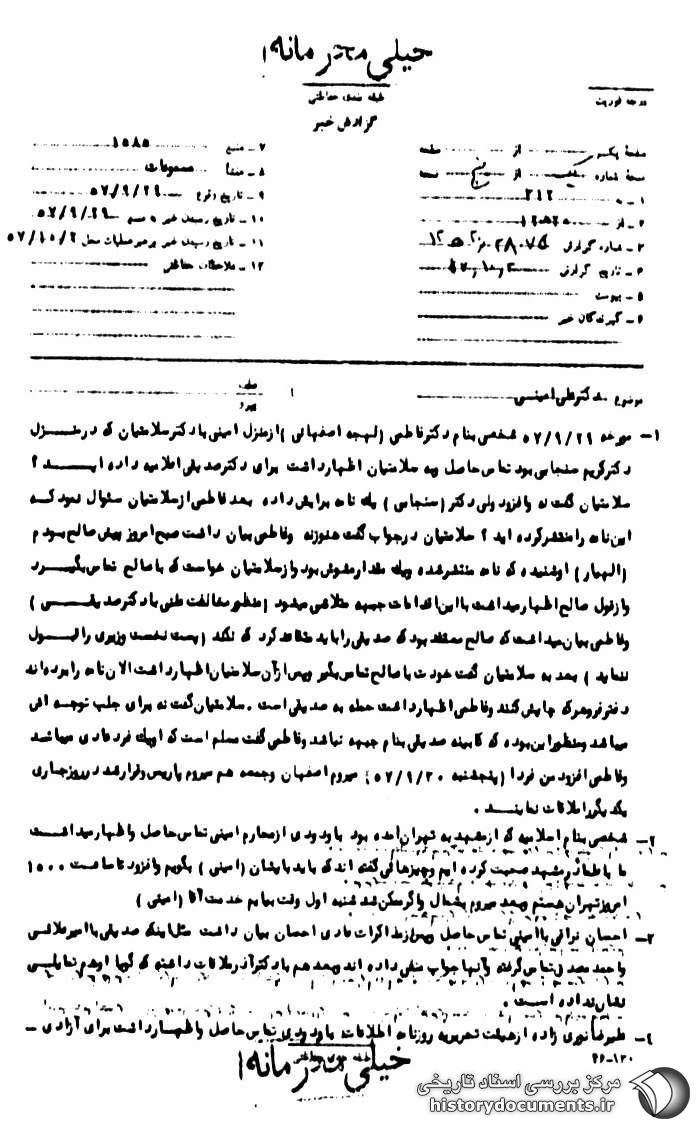 خیلی محرمانه
طبقه بندی حفاظتی
درجه فوریت
گزارش خبر
صفحهٔ یکم از صفحه
نسخهٔ شماره یک از پنج نسخه
۱ - به ۳۱۲
۲ - از
۳ - شماره گزارش
۴ - تاریخ گزارش
۵ - پیوست
۶ - گیرندگان خبر
۷ - منبع ۱۵۸۵
۸ - منشأ مسموعات
۹ - تاریخ وقوع ۵۷/۹/۲۹
۱۰ - تاریخ رسیدن خبر به منبع ۵۷/۹/۲۹
۱۱ - تاریخ رسیدن خبر برهبر عملیات محل ۵۷/۱۰/۲
۱۲ - ملاحظات حفاظتی
موضوع دکتر علی امینی
عطف
پیرو
۱- مورخه ۵۷/۹/۲۹ شخصی بنام دکتر فاطمی (لهجه اصفهانی) از منزل امینی با دکتر سلامتیان که در منزل
دکتر کریم سنجابی بود تماس حاصل و به سلامتیان اظهار داشت برای دکتر صدیقی اعلامیه داده اید؟
سلامتیان گفت نه و افزود ولی دکتر (سنجابی) یک نامه برایش داده بعد فاطمی از سلامتیان سئوال نمود که
این نامه را منتشر کرده اید؟ سلامتیان در جواب گفت هنوز نه وفاطمی بیان داشت صبح امروز پیش صالح بودم
(الهیار) او شنیده که نامه منتشر شده ویک مقدار مشوش بود واز سلامتیان خواست که با صالح تماس بگیرد
واز قول صالح اظهار میداشت با این اقدامات جبهه متلاشی میشود (منظور مخالفت علنی با دکتر صدیقی)
وفاطمی بیان میداشت که صالح معتقد بود که صدیقی را باید متقاعد کرد که نکند (پست نخست وزیری را قبول
ننماید) بعد به سلامتیان گفت خودت با صالح تماس بگیر وپس از آن سلامتیان اظهار داشت الان نامه را برده اند
دفتر فروهر که چاپش کنند وفاطمی اظهار داشت حمله به صدیقی است. سلامتیان گفت نه برای جلب توجه اش
میباشد ومنظور این بوده که کابینه صدیقی بنام جبهه نباشد وفاطمی گفت مسلم است که او یک فرد عادی میباشد
وفاطمی افزود من فردا (پنجشنبه ۵۷/۹/۳۰) میروم اصفهان وجمعه هم میروم پاریس وقرار شد در روز جاری
یکدیگر را ملاقات نمایند.
۲- شخصی بنام اسلامیه که از مشهد به تهران آمده بود با ودودی از محارم امینی تماس حاصل واظهار میداشت
ما با علماء در مشهد صحبت کرده ایم وچیزهائی گفته اند که باید بایشان (امینی) بگویم وافزود تا ساعت ۱۵۰۰
امروز تهران هستم وبعد میروم بشمال واگر ممکن شد شنبه اول وقت بیایم خدمت آقا (امینی)
۳- احسان نراقی با امینی تماس حاصل وپس از مذاکرات عادی احسان بیان داشت مثل اینکه صدیقی با امیرعلائی
واحمد مصدق تماس گرفته وآنها جواب منفی داده اند وبعد هم با دکتر آذر ملاقات داشته که گویا او هم تمایلی
نشان نداده است.
۴- علیرضا نوری زاده از هیئت تحریریه روزنامه اطلاعات با ودودی تماس حاصل واظهار داشت برای آزادی -
۴۶-۱۳۰
خیلی محرمانه
مرکز بررسی اسناد تاریخی
historydocuments.ir